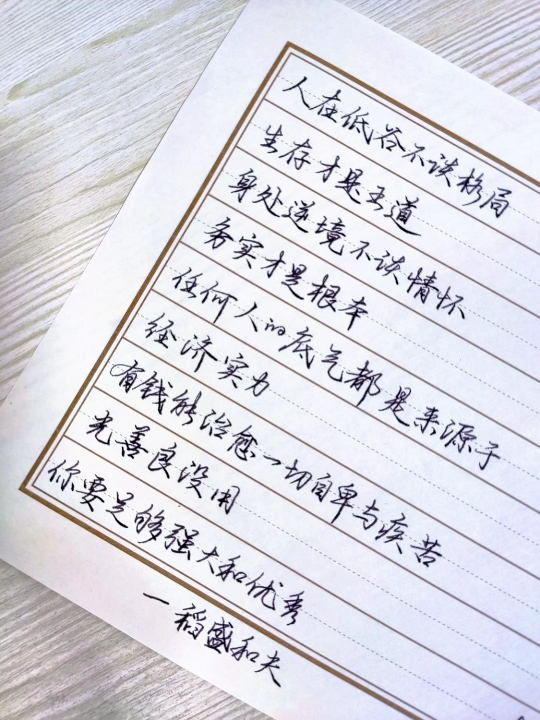 人在低谷不谈格局
生存才是王道
身处逆境不谈情怀
务实才是根本
任何人的底气都是来源于
经济实力
有钱能治愈一切自卑与疾苦
光善良没用
你要足够强大和优秀
一稻盛和夫